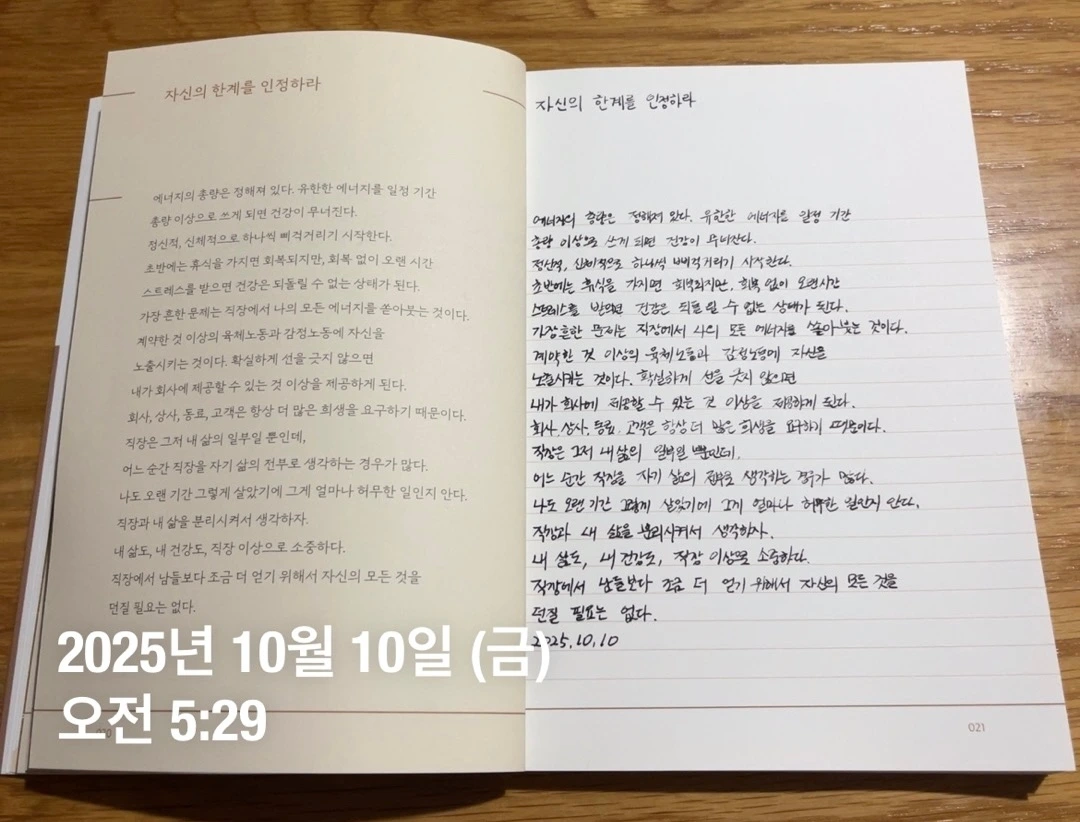 자신의 한계를 인정하라
에너지의 총량은 정해져 있다. 유한한 에너지를 일정 기간
총량 이상으로 쓰게 되면 건강이 무너진다.
정신적, 신체적으로 하나씩 삐걱거리기 시작한다.
초반에는 휴식을 가지면 회복되지만, 회복 없이 오랜 시간
스트레스를 받으면 건강은 되돌릴 수 없는 상태가 된다.
가장 흔한 문제는 직장에서 나의 모든 에너지를 쏟아붓는 것이다.
계약한 것 이상의 육체노동과 감정노동에 자신을
노출시키는 것이다. 확실하게 선을 긋지 않으면
내가 회사에 제공할 수 있는 것 이상을 제공하게 된다.
회사, 상사, 동료, 고객은 항상 더 많은 희생을 요구하기 때문이다.
직장은 그저 내 삶의 일부일 뿐인데,
어느 순간 직장을 자기 삶의 전부로 생각하는 경우가 많다.
나도 오랜 기간 그렇게 살았기에 그게 얼마나 허무한 일인지 안다.
직장과 내 삶을 분리시켜서 생각하자.
내 삶도, 내 건강도, 직장 이상으로 소중하다.
직장에서 남들보다 조금 더 얻기 위해서 자신의 모든 것을
던질 필요는 없다.
2025년 10월 10일 (금)
오전 5:29
자신의 한계를 인정하라
에너지의 총량은 정해져 있다. 유한한 에너지를 일정 기간
총량 이상으로 쓰게 되면 건강이 무너진다.
정신적, 신체적으로 하나씩 삐걱거리기 시작한다.
초반에는 휴식을 가지면 회복되지만, 회복 없이 오랜시간
스트레스를 받으면 건강은 되돌릴 수 없는 상태가 된다.
가장 흔한 문제는 직장에서 나의 모든 에너지를 쏟아붓는 것이다.
계약한 것 이상의 육체노동과 감정노동에 자신을
노출시키는 것이다. 확실하게 선을 긋지 않으면
내가 회사에 제공할 수 있는 것 이상을 제공하게 된다.
회사, 상사, 동료, 고객은 항상 더 많은 희생을 요구하기 때문이다.
직장은 그저 내 삶의 일부일 뿐인데,
어느 순간 직장을 자기 삶의 전부로 생각하는 경우가 많다.
나도 오랜 기간 그렇게 살았기에 그게 얼마나 허무한 일인지 안다.
직장과 내 삶을 분리시켜서 생각하자.
내 삶도, 내 건강도, 직장 이상으로 소중하다.
직장에서 남들보다 조금 더 얻기 위해서 자신의 모든 것을
던질 필요는 없다.
2025.10.10
021